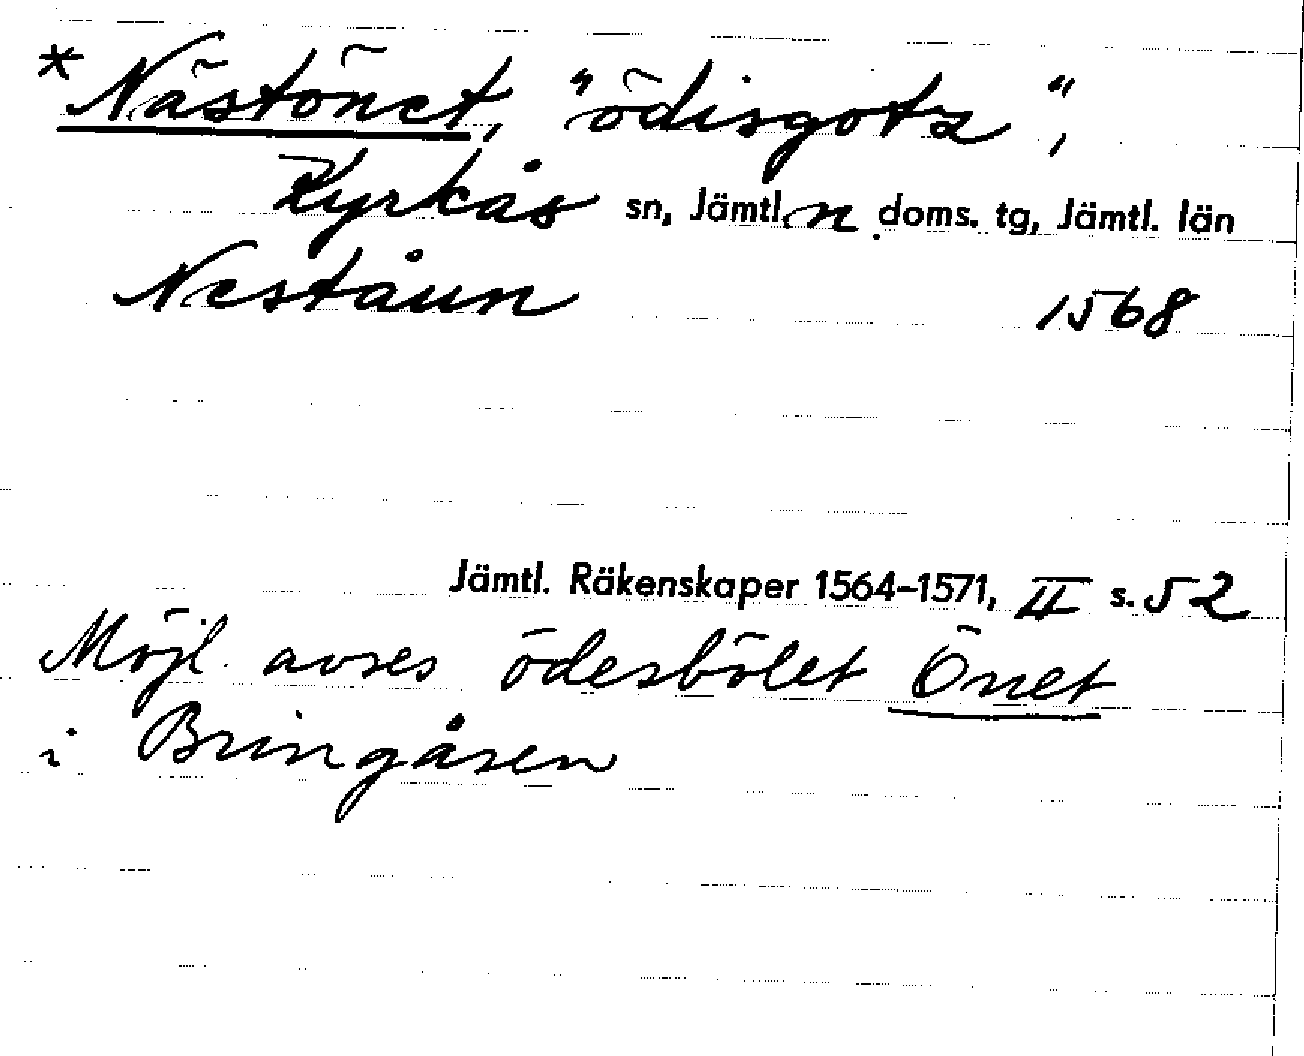 *Nästönet, "ödisgotz",
Kyrkås sn, Jämtl. n doms. tg, Jämtl. län
Neståun 1568
Jämtl. Räkenskaper 1564–1571, II s. 52
Möjl. avses ödesbölet Önet
i Bringåsen